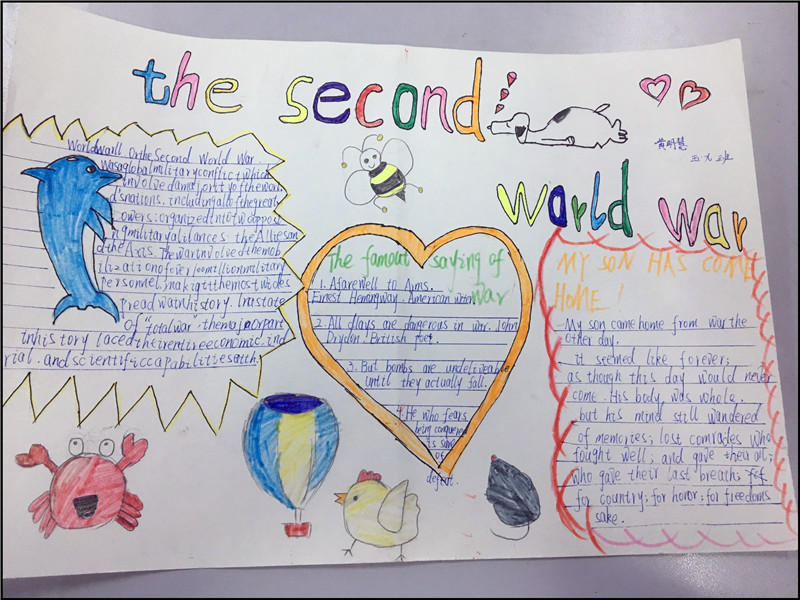 the second
world war
黄明慧
五.九班
World warII Or the Second World War.
was a global military conflict which
involved a majority of the world
's nations, including all of the great
powers: organized into two oppos
ing military alliances the Allies an
d the Axis. The war involved the mob
ilization of over 100 million military
personnel, making it the most wides
pread war in history. In a state
of "total war", the major part
in history laced their entire economic, ind
rial. and scientific capabilities at th.
The famous saying of
War
1. A farewell to Arms.
Ernest Hemingway. American writer
2. All dlays are dangerous in war. John
Dryden. British foet.
3. But bombs are unbelievable
until they actually fall.
4. He who fears
being conquered
is sure
of
defeat.
MY SON HAS COME
HOME!
My son came home from war the
other day.
it seemed like forever;
as though this day would never
come. His body was whole.
but his mind still wandered
of memories; lost comrades who
fought well; and gave their all;
who gave their last breath;
for country; for honor; for freedoms
sake.